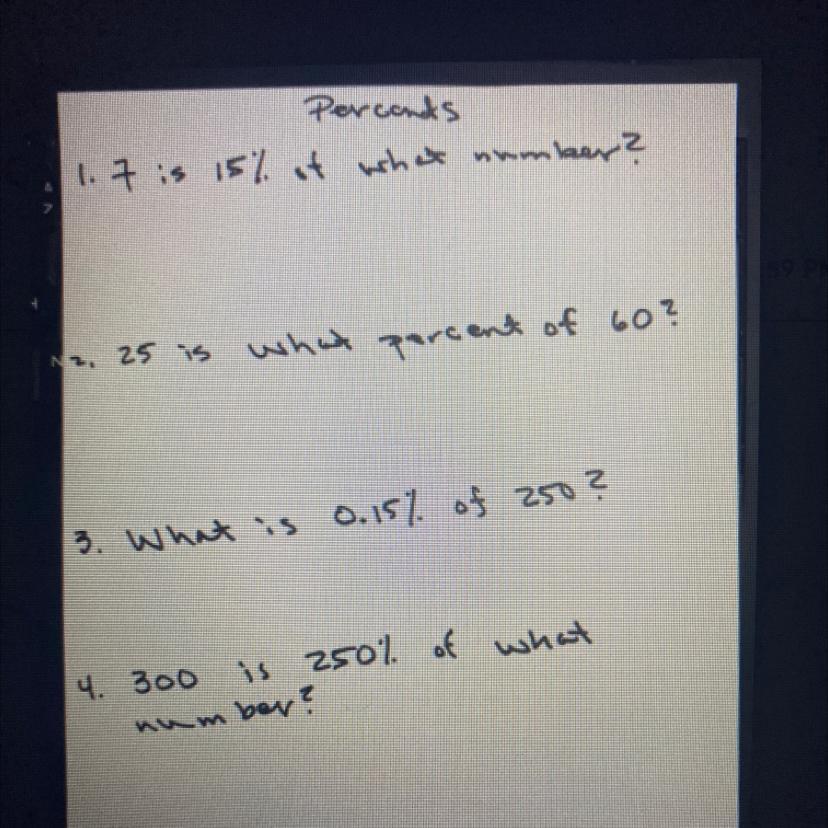 Percents
1. 7 is 15% of what number?
2. 25 is what percent of 60?
3. What is 0.15% of 250?
4. 300 is 250% of what
number?